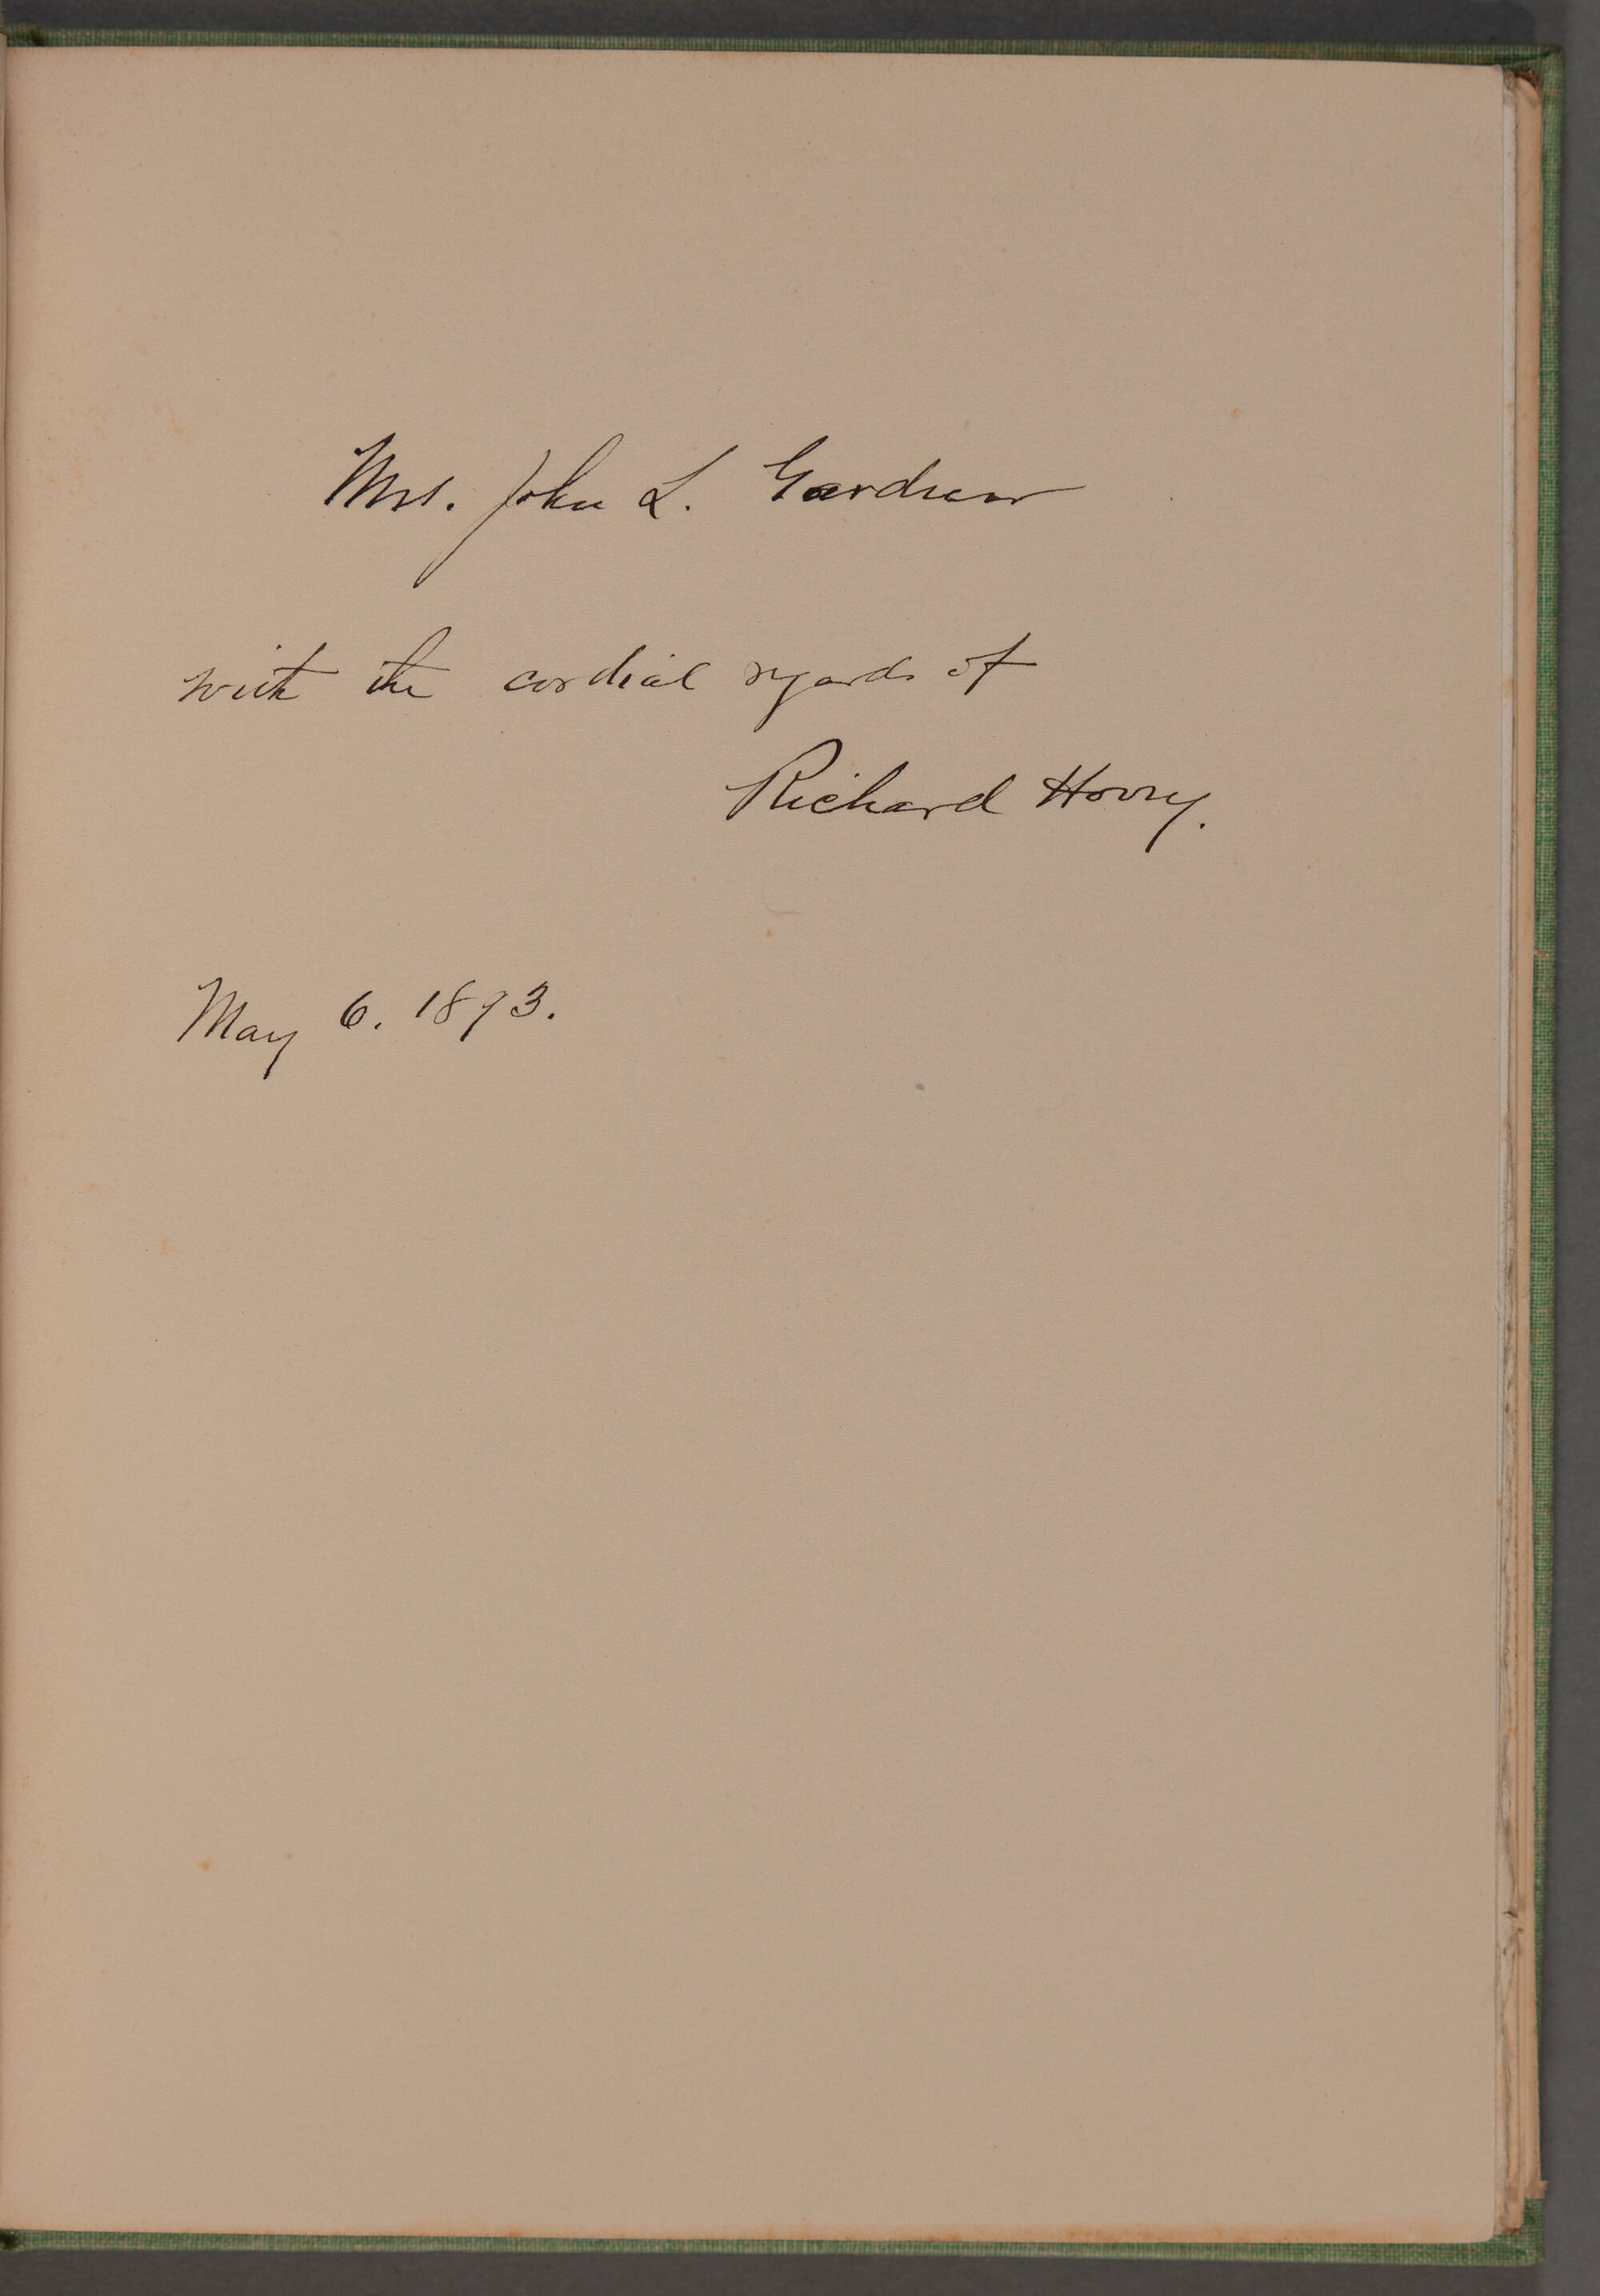 Mrs. John L. Gardner
with the cordial regards of
Richard Hovey.
May 6. 1893.